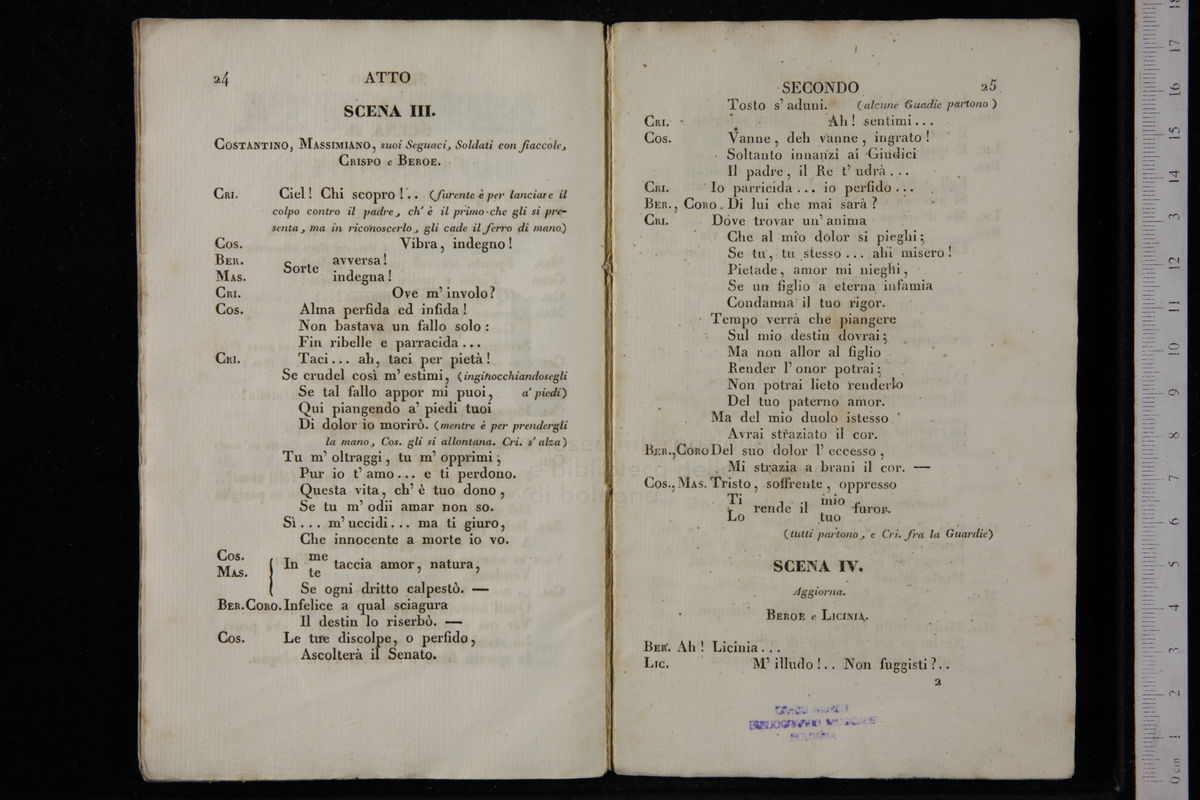 24 ATTO
SCENA III.
COSTANTINO, MASSIMIANO, suoi Seguaci, Soldati con fiaccole,
CRISPO e BEROE.
CRI. Ciel! Chi scopro!.. (furente è per lanciare il
colpo contro il padre, ch' è il primo che gli si pre-
senta, ma in riconoscerlo, gli cade il ferro di mano)
COS. Vibra, indegno!
BER. Sorte avversa!
MAS. indegna!
CRI. Ove m' involo?
COS. Alma perfida ed infida!
Non bastava un fallo solo:
Fin ribelle e parracida...
CRI. Taci... ah, taci per pietà!
Se crudel così m' estimi, (inginocchiandosegli
Se tal fallo appor mi puoi, a' piedi)
Qui piangendo a' piedi tuoi
Di dolor io morirò. (mentre è per prendergli
la mano, Cos. gli si allontana. Cri. s' alza)
Tu m' oltraggi, tu m' opprimi;
Pur io t' amo... e ti perdono.
Questa vita, ch' è tuo dono,
Se tu m' odii amar non so.
Sì... m' uccidi... ma ti giuro,
Che innocente a morte io vo.
COS. In me taccia amor, natura,
MAS. te
Se ogni dritto calpestò. —
BER. CORO. Infelice a qual sciagura
Il destin lo riserbò. —
COS. Le tue discolpe, o perfido,
Ascolterà il Senato.
SECONDO 25
Tosto s' aduni. (alcune Guadie partono)
CRI. Ah! sentimi...
COS. Vanne, deh vanne, ingrato!
Soltanto innanzi ai Giudici
Il padre, il Re t' udrà...
CRI. Io parricida... io perfido...
BER., CORO. Di lui che mai sarà?
CRI. Dove trovar un' anima
Che al mio dolor si pieghi;
Se tu, tu stesso... ahi misero!
Pietade, amor mi nieghi,
Se un figlio a eterna infamia
Condanna il tuo rigor.
Tempo verrà che piangere
Sul mio destin dovrai;
Ma non allor al figlio
Render l' onor potrai;
Non potrai lieto renderlo
Del tuo paterno amor.
Ma del mio duolo istesso
Avrai straziato il cor.
BER., CORO Del suo dolor l' eccesso,
Mi strazia a brani il cor. —
COS., MAS. Tristo, soffrente, oppresso
Ti rende il mio furor.
Lo tuo
(tutti partono, e Cri. fra la Guardie)
SCENA IV.
Aggiorna.
BEROE e LICINIA.
BER. Ah! Licinia...
LIC. M' illudo!.. Non fuggisti?..
2